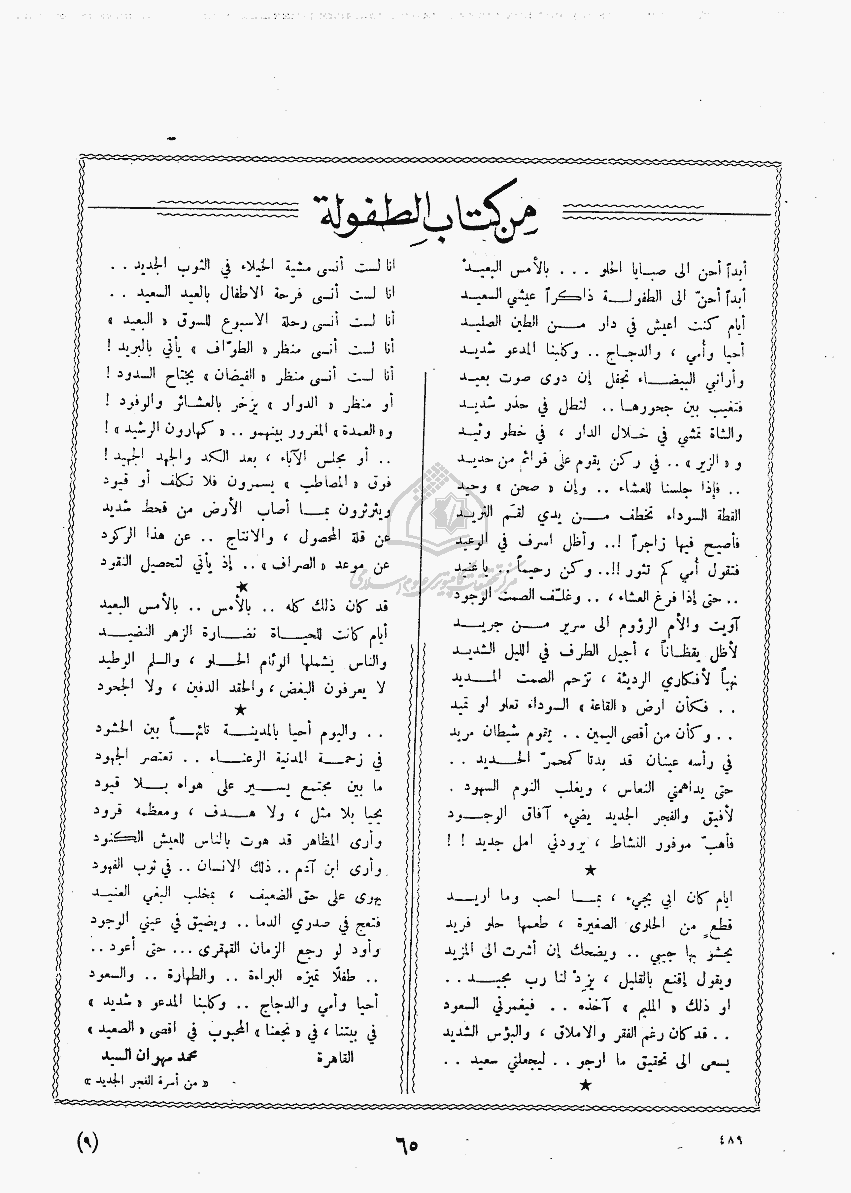 من كتاب الطفولة
أبداً أحن الى صبايا الحلو . . . بالأمس البعيد
أبداً أحنّ الى الطفولة ذاكراً عيشي السعيد
أيام كنت اعيش في دار من الطين الصليد
أحيا وأمي ، والدجاج .. وكلبنا المدعو شديد
وأراني البيضاء تجفل إن دوى صوت بعيد
فتغيب بين جحورها .. لتطل في حذر شديد
والشاة تمشي في خلال الدار ، في خطو وئيد
و « الزير » .. في ركن يقوم على قوائم من حديد
.. فإذا جلسنا للعشاء .. وإن « صحن » وحيد
القطة السوداء تخطف من يدي لقم الثريد
فأصيح فيها زاجراً !.. وأظل اسرف في الوعيد
فتقول أمي كم تثور !!.. وكن رحيماً .. يا عنيد
.. حتى إذا فرغ العشاء ، .. وغلّف الصمت الوجود
آويت والأم الرؤوم الى سرير من جريد
لأظل يقظاناً ، أجيل الطرف في الليل الشديد
نهباً لأفكاري الرديئة ، تزحم الصمت المديد
. . فكأن ارض « القاعة » السوداء تعلو او تميد
. . وكأن من أقصى اليمين .. يقوم شيطان مريد
في رأسه عينان قد بدتا كمحمرّ الحديد . .
حتى يداهمني النعاس ، ويغلب النوم السهود .
لأفيق والفجر الجديد يضيء آفاق الوجود
فأهبّ موفور النشاط ، يرودني امل جديد ! !
★
ايام كان ابي يجيء ، بما احب وما اريد
قطع من الحلوى الصغيرة ، طعمها حلو فريد
يحشو بها جيبي .. ويضحك إن أشرت الى المزيد
ويقول إقنع بالقليل ، يزد لنا رب مجيد . .
او ذلك « المليم » آخذه .. فيغمرني السعود
. . قد كان رغم الفقر والاملاق ، والبؤس الشديد
يسعى الى تحقيق ما ارجو . . ليجعلني سعيد . .
★
انا لست أنسى مشية الخيلاء في الثوب الجديد . .
انا لست أنسى فرحة الاطفال بالعيد السعيد . .
أنا لست أنسى رحلة الاسبوع للسوق « البعيد »
أنا لست أنسى منظر « الطوّاف » يأتي بالبريد !
أنا لست أنسى منظر « الفيضان » يجتاح السدود !
أو منظر « الدوار » يزخر بالعشائر والوفود !
و« العمدة » المغرور بينهمو .. « كهارون الرشيد » !
.. أو مجلس الآباء ، بعد الكد والجهد الجهيد !
فوق « المصاطب » يسمرون فلا تكلف أو قيود
ويثرثرون بما أصاب الأرض من قحط شديد
عن قلة المحصول ، والانتاج .. عن هذا الركود
عن موعد « الصراف » .. إذ يأتي لتحصيل النقود
★
قد كان ذلك كله .. بالأمس .. بالأمس البعيد
أيام كانت للحياة نضارة الزهر النضيد
والناس يشملها الوئام الحلو ، والسلم الوطيد
لا يعرفون البغض ، والحقد الدفين ، ولا الجحود
★
. . واليوم أحيا بالمدينة تائهاً بين الحشود
في زحمة المدنية الرعناء . . تعتصر الجهود
ما بين مجتمع يسير على هواه بلا قيود
يحيا بلا مثل ، ولا هدف ، ومعظمه قرود
وأرى المظاهر قد هوت بالناس للعيش الكنود
وأرى ابن آدم .. ذلك الانسان .. في ثوب الفهود
يهوى على حق الضعيف ، بمخلب البغي العنيد
فتعج في صدري الدما .. ويضيق في عيني الوجود
وأود لو رجع الزمان القهقرى ... حتى أعود ..
.. طفلًا تميزه البراءة .. والطهارة .. والسعود
أحيا وأمي والدجاج .. وكلبنا المدعو « شديد »
في بيتنا ، في « نجعنا » المحبوب في اقصى « الصعيد »
القاهرة محمد مهران السيد
« من أسرة الفجر الجديد »
مركز تحقيقات كامپيوتری علوم اسلامی
٤٨٩ ٦٥ (٩)